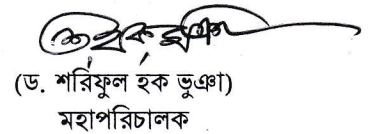 (ড. শরিফুল হক ভুঞা)
মহাপরিচালক